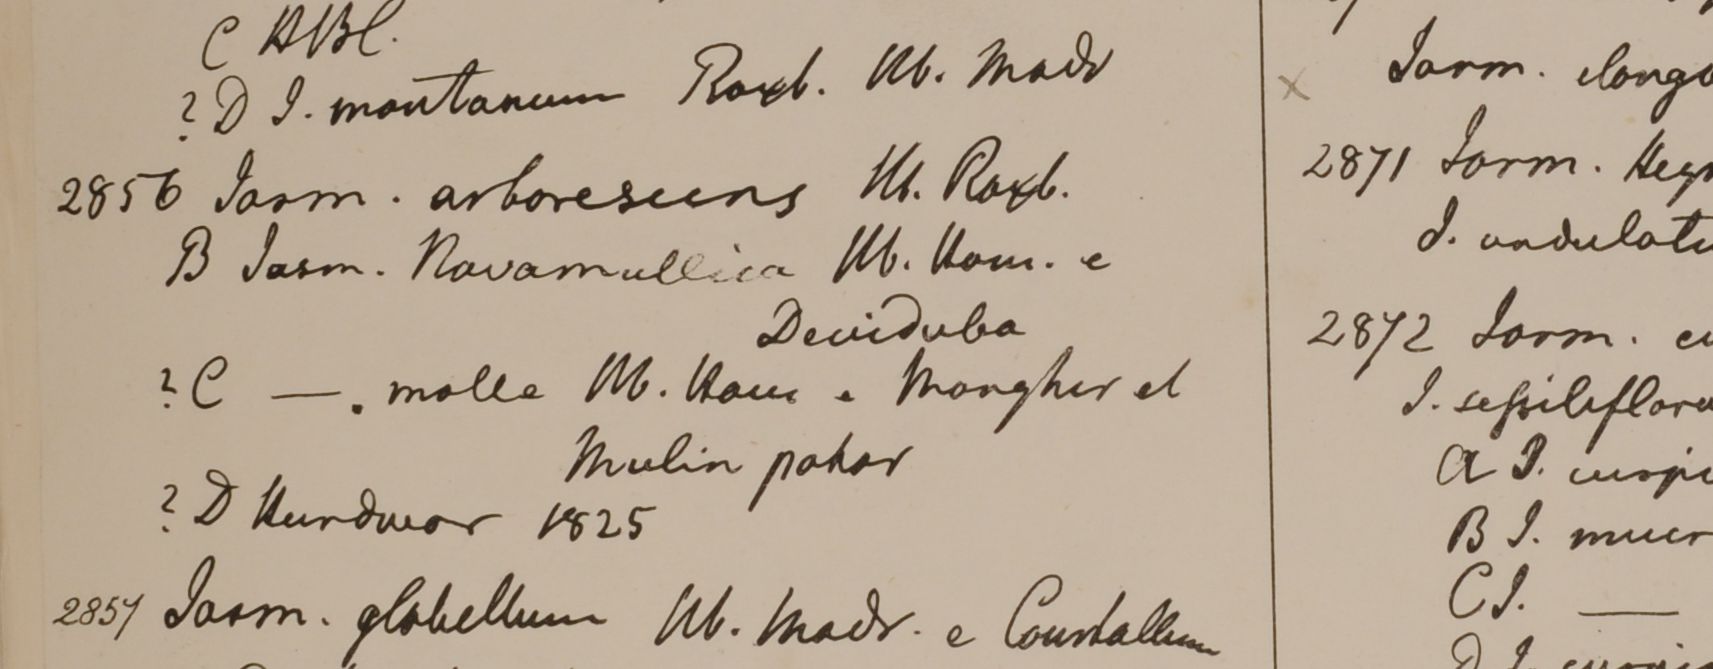 C HBC.
?D J. montanum Roxb. Hb. Madr
2856 Jasm. arborescens Hb. Roxb.
B Jasm. Navamullica Hb. Ham. e
Deviduba
?C —. molle Hb. Ham e Monghir et
Mulin pahar
?D Hurdwar 1825
2857 Jasm. glabellum Hb. Madr. e Courtallum
x Jasm. elonga
2871 Jasm. Heyn
J. undulatu
2872 Jasm. cu
J. sessilifloru
A J. cuspi
B J. mucr
C J. —
D J.